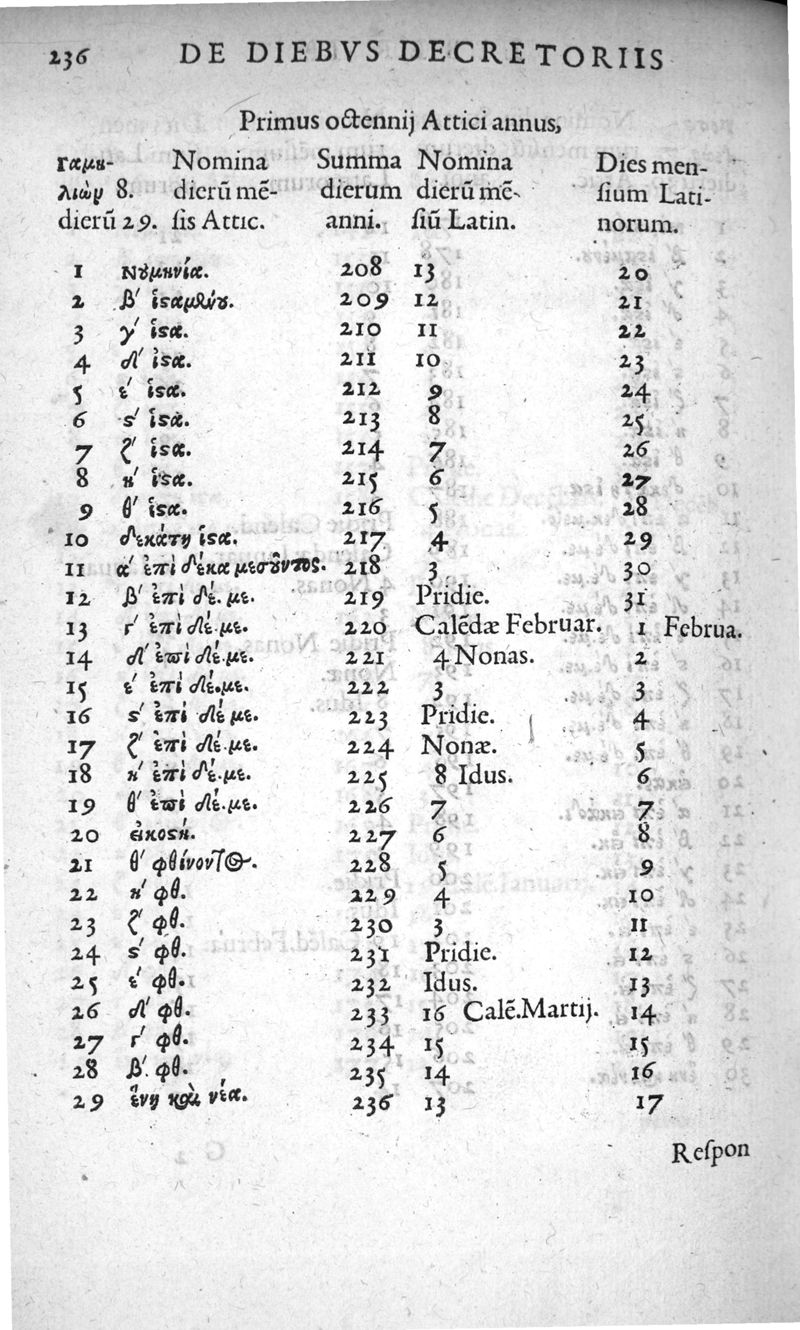 236 DE DIEBVS DECRETORIIS
Primus octennij Attici annus,
Γαμη- Nomina Summa Nomina Dies men-
λιὼν 8. dierũ mẽ- dierum dierũ mẽ- sium Lati-
dierũ 29. sis Attic. anni. siũ Latin. norum.
1 Νουμηνία. 208 13 20
2 β′ ἱσαμένου. 209 12 21
3 γ′ ἱσα. 210 11 22
4 δ′ ἱσα. 211 10 23
5 ε′ ἱσα. 212 9 24
6 ς′ ἱσα. 213 8 25
7 ζ′ ἱσα. 214 7 26
8 η′ ἱσα. 215 6 27
9 θ′ ἱσα. 216 5 28
10 δεκάτη ἱσα. 217 4 29
11 α′ ἐπὶ δέκα μεσοῦντος. 218 3 30
12 β′ ἐπὶ δέ. με. 219 Pridie. 31
13 γ′ ἐπὶ δέ. με. 220 Calẽdæ Februar. 1 Februa.
14 δ′ ἐπὶ δέ. με. 221 4 Nonas. 2
15 ε′ ἐπὶ δέ. με. 222 3 3
16 ς′ ἐπὶ δέ με. 223 Pridie. 4
17 ζ′ ἐπὶ δέ. με. 224 Nonæ. 5
18 η′ ἐπὶ δέ. με. 225 8 Idus. 6
19 θ′ ἐπὶ δέ. με. 226 7 7
20 εἰκοστή. 227 6 8
21 θ′ φθίνοντος. 228 5 9
22 η′ φθ. 229 4 10
23 ζ′ φθ. 230 3 11
24 ς′ φθ. 231 Pridie. 12
25 ε′ φθ. 232 Idus. 13
26 δ′ φθ. 233 16 Calẽ. Martij. 14
27 γ′ φθ. 234 15 15
28 β′. φθ. 235 14 16
29 ἕνη καὶ νέα. 236 13 17
Respon